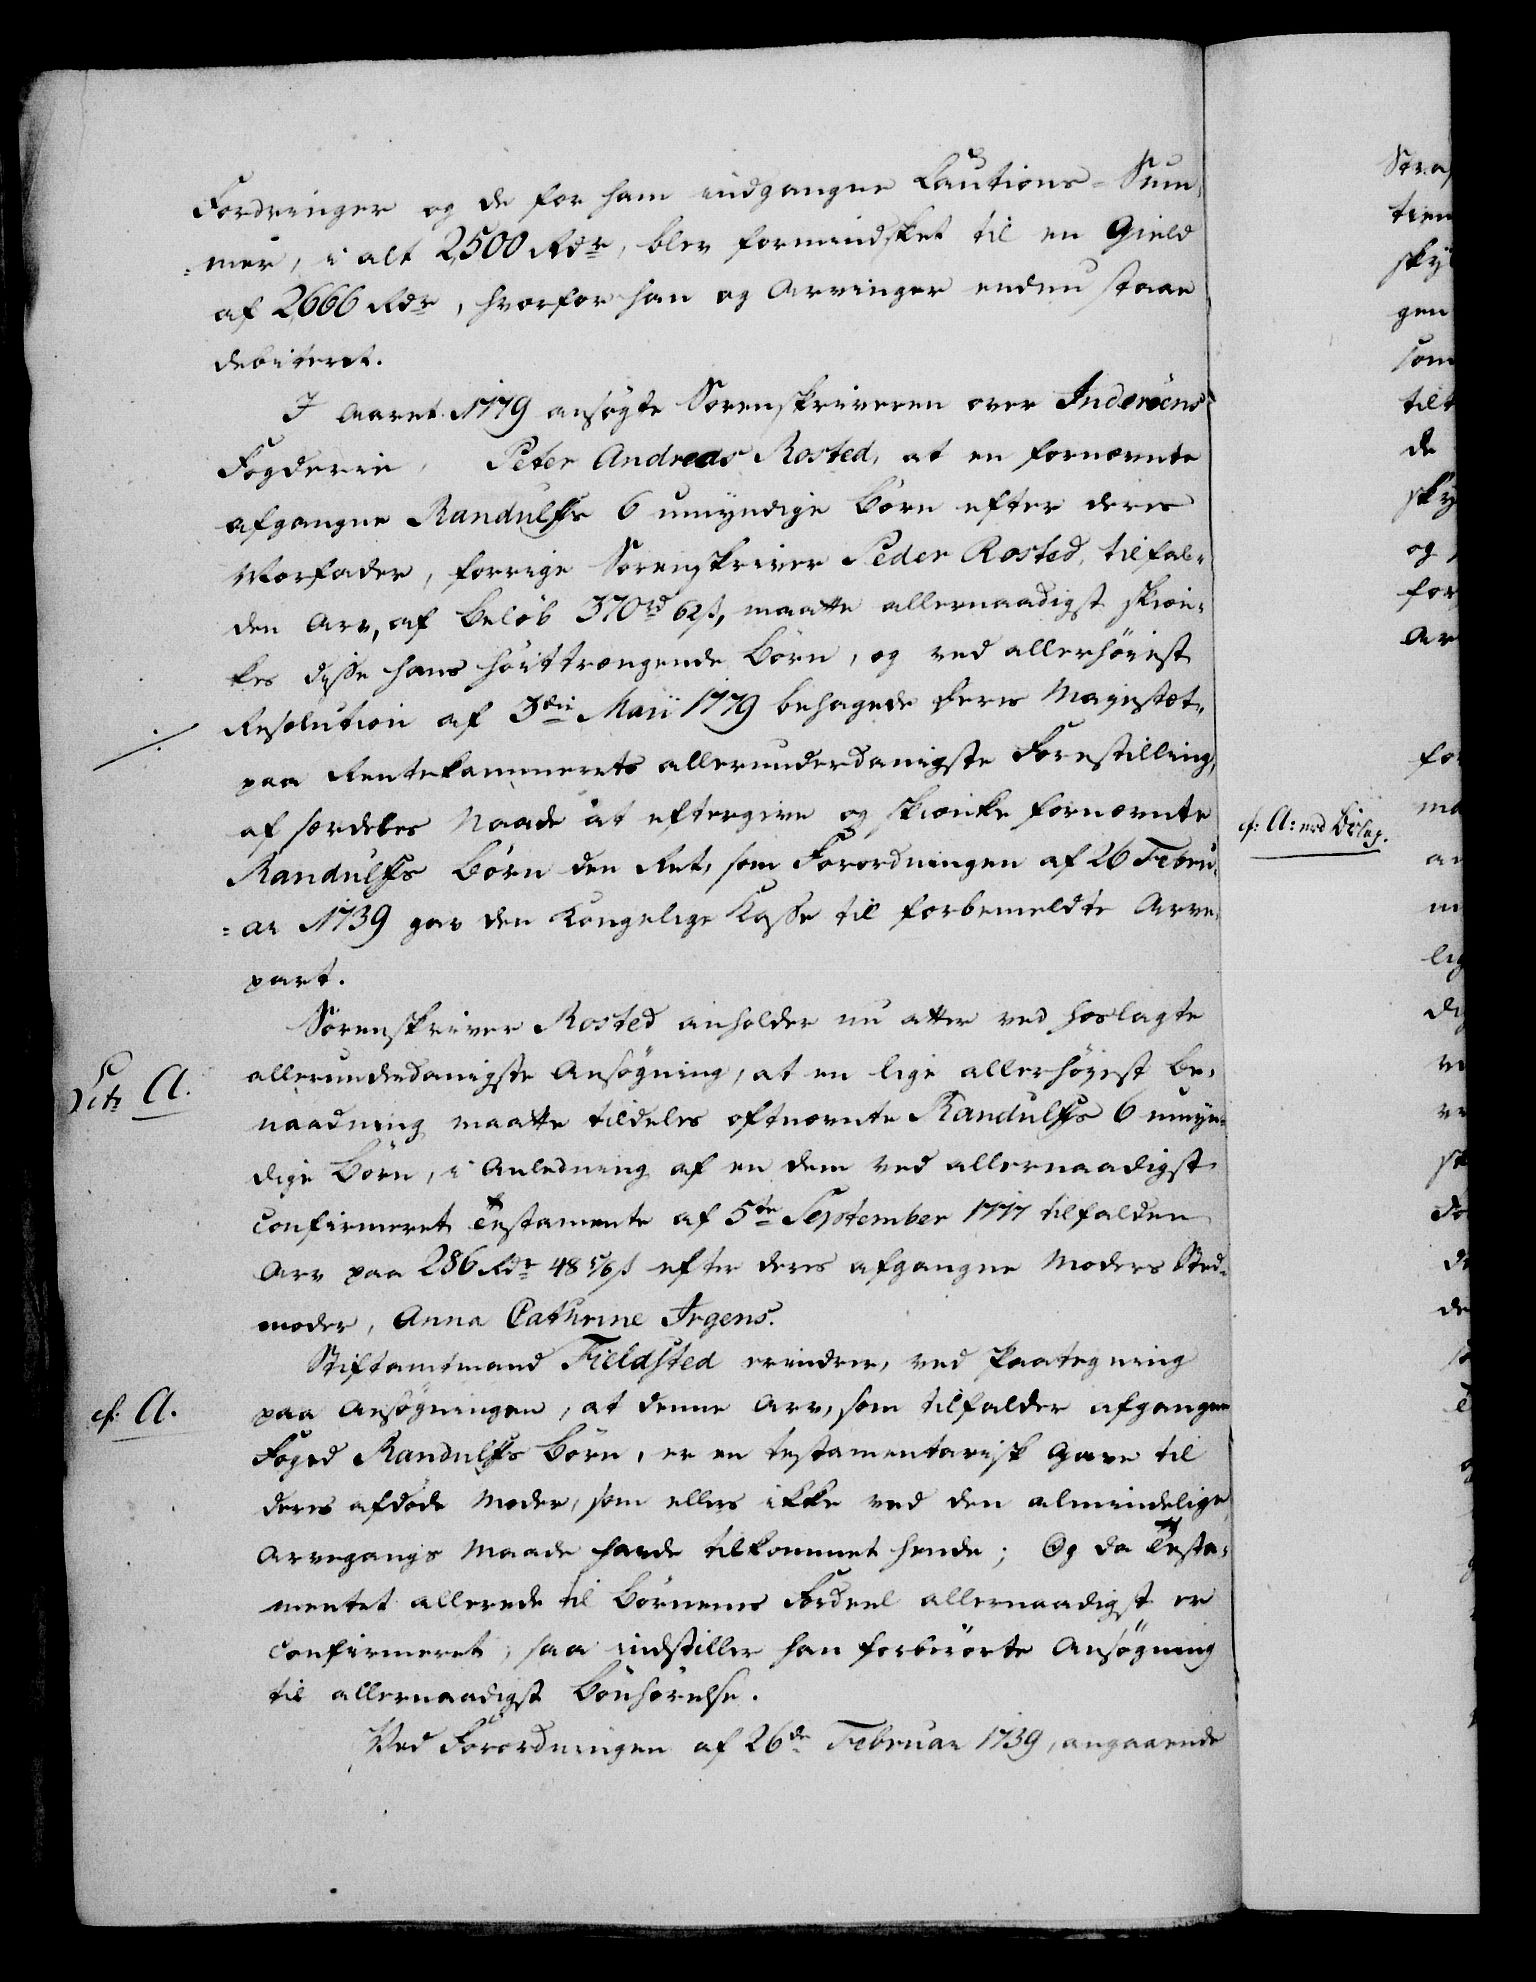 Fordringer og de for ham indgangne Cautions-Sum-
=mer, i alt 2500 Rdr, blev formindsket til en Gield
af 2666 Rdr, hvorfor han og Arvinger endnu staae
debiteret.
I Aaret 1779 ansøgte Sorenskriveren over Inderøens
Fogderie, Peter Andreas Rosted, at en fornævnte
afgangne Randulffs 6 umyndige Børn efter deres
Morfader, forrige Sorenskriver Peder Rosted, tilfal-
den Arv, af Beløb 370rd 62s, maatte allernaadigst skien-
kes disse hans høittrængende Børn, og ved allerhøieste
Resolution af 3die Maii 1779 behagede Deres Majestæt,
paa Rentekammerets allerunderdanigste Forestilling,
af særdeles Naade at eftergive og skiænke fornævnte
Randulffs Børn den Ret, som Forordningen af 26 Febru-
=ar 1739 gav den Kongelige Kasse til forbemeldte Arve-
part.
Sorenskriver Rosted anholder nu atter ved hoslagte
Litr A.
allerunderdanigste Ansøgning, at en lige allerhøyest Be-
naadning maatte tildeles oftnævnte Randulffs 6 umyn-
dige Børn, i Anledning af en dem ved allernaadigst
confirmeret Testamente af 5te September 1777 tilfalden
Arv paa 286 Rdr 48 5/6 s efter deres afgangne Moders Sted-
moder, Anna Cathrine Irgens.
Stiftamtmand Fieldsted erindrer, ved Paategning
cf: A.
paa Ansøgningen, at denne Arv, som tilfalder afgangne
Foged Randulffs Børn, er en testamentarisk Gave til
deres afdøde Moder, som ellers ikke ved den almindelige
Arvegangs Maade havde tilkommet hende; Og da Testa-
mentet allerede til Børnenes Fordeel allernaadigst er
confirmeret, saa indstiller han forberørte Ansøgning
til allernaadigst Bønhørelse.
Ved Forordningen af 26de Februar 1739, angaaende
cf: A: med Bilag.